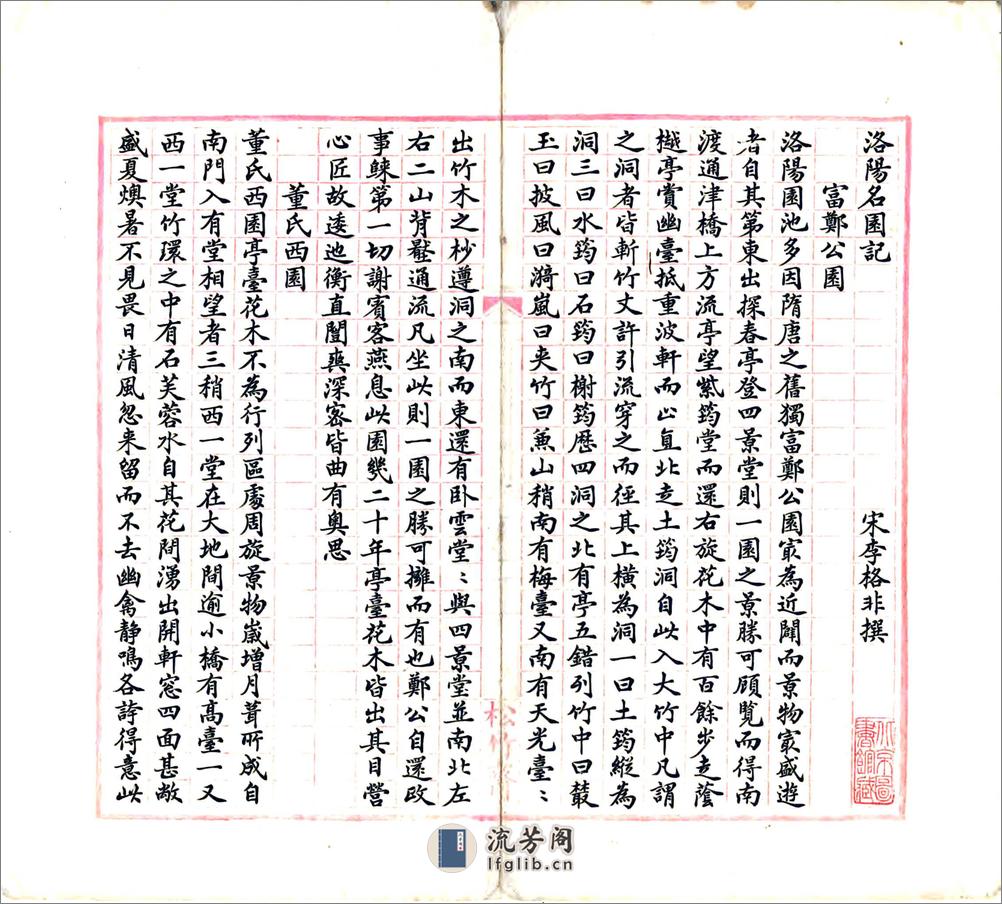 洛陽名園記
宋李格非撰
富鄭公園
洛陽園池多因隋唐之舊獨富鄭公園冣為近闢而景物冣盛遊
者自其第東出探春亭登四景堂則一園之景勝可顧覽而得南
渡通津橋上方流亭望紫筠堂而還右旋花木中有百餘步走蔭
樾亭賞幽臺抵重波軒而止直北走土筠洞自此入大竹中凡謂
之洞者皆斬竹丈許引流穿之而徑其上橫為洞一曰土筠縱為
洞三曰水筠曰石筠曰榭筠歷四洞之北有亭五錯列竹中曰叢
玉曰披風曰漪嵐曰夾竹曰兼山稍南有梅臺又南有天光臺〻
出竹木之杪遵洞之南而東還有卧雲堂〻與四景堂並南北左
右二山背壓通流凡坐此則一園之勝可擁而有也鄭公自還政
事歸第一切謝賓客燕息此園幾二十年亭臺花木皆出其目營
心匠故逶迤衡直闓爽深密皆曲有奥思
董氏西園
董氏西園亭臺花木不為行列區處周旋景物嵗增月葺所成自
南門入有堂相望者三稍西一堂在大地間逾小橋有高臺一又
西一堂竹環之中有石芙蓉水自其花間湧出開軒窓四面甚敞
盛夏燠暑不見畏日清風忽来留而不去幽禽静鳴各誇得意此
松竹
北京圖書館藏
流芳阁
lfglib.cn